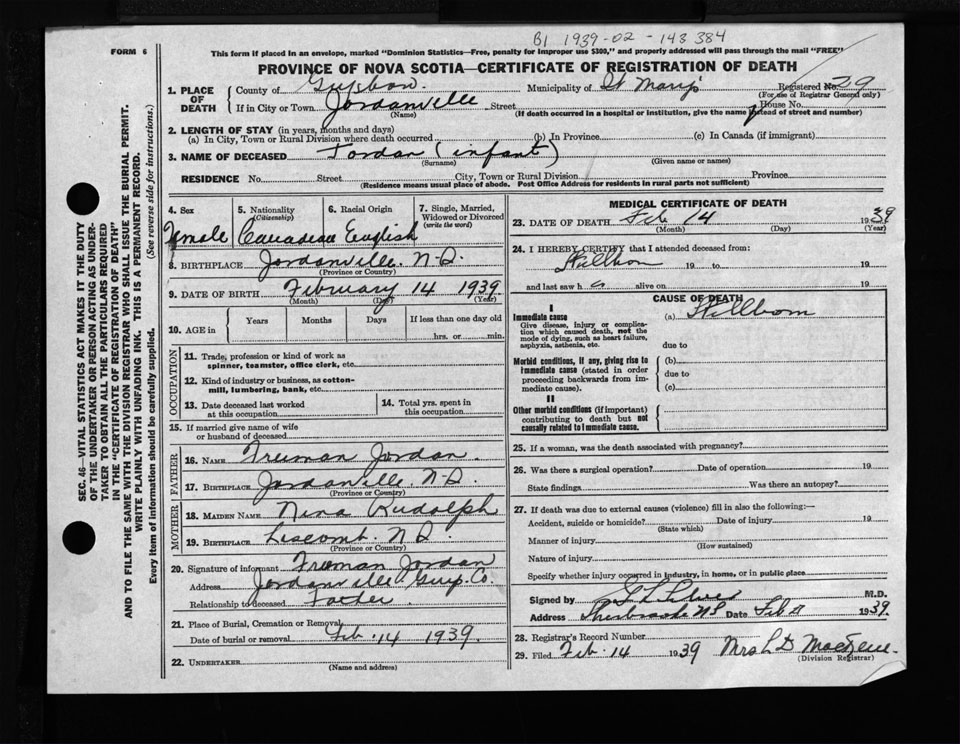 B1 1939-02-143384
FORM 6
This form if placed in an envelope, marked "Dominion Statistics—Free, penalty for improper use $300," and properly addressed will pass through the mail "FREE"
PROVINCE OF NOVA SCOTIA—CERTIFICATE OF REGISTRATION OF DEATH
SEC. 46—VITAL STATISTICS ACT MAKES IT THE DUTY
OF THE UNDERTAKER OR PERSON ACTING AS UNDER-
TAKER TO OBTAIN ALL THE PARTICULARS REQUIRED
IN THE "CERTIFICATE OF REGISTRATION OF DEATH"
AND TO FILE THE SAME WITH THE DIVISION REGISTRAR WHO SHALL ISSUE THE BURIAL PERMIT.
WRITE PLAINLY WITH UNFADING INK. THIS IS A PERMANENT RECORD.
Every item of information should be carefully supplied. (See reverse side for instructions.)
1. PLACE OF DEATH
County of Guysboro Municipality of St Mary's Registered No. 29
(For use of Registrar General only)
If in City or Town Jordanville Street House No.
(Name) (If death occurred in a hospital or institution, give the name instead of street and number)
2. LENGTH OF STAY (in years, months and days)
(a) In City, Town or Rural Division where death occurred (b) In Province (c) In Canada (if immigrant)
3. NAME OF DECEASED Jordan (infant)
(Surname) (Given name or names)
RESIDENCE No. Street City, Town or Rural Division Province
(Residence means usual place of abode. Post Office Address for residents in rural parts not sufficient)
4. Sex 5. Nationality (Citizenship) 6. Racial Origin 7. Single, Married, Widowed or Divorced (write the word)
Female Canadian English
8. BIRTHPLACE Jordanville. N.S.
(Province or Country)
9. DATE OF BIRTH February 14 1939
(Month) (Day) (Year)
10. AGE in Years Months Days If less than one day old
hrs. or min.
OCCUPATION
11. Trade, profession or kind of work as
spinner, teamster, office clerk, etc.
12. Kind of industry or business, as cotton-
mill, lumbering, bank, etc.
13. Date deceased last worked
at this occupation
14. Total yrs. spent in
this occupation
15. If married give name of wife
or husband of deceased
FATHER
16. NAME Freeman Jordan
17. BIRTHPLACE Jordanville. N.S.
(Province or Country)
MOTHER
18. MAIDEN NAME Nina Rudolph
19. BIRTHPLACE Liscomb. N.S.
(Province or Country)
20. Signature of informant Freeman Jordan
Address Jordanville Guys. Co.
Relationship to deceased Father
21. Place of Burial, Cremation or Removal
Date of burial or removal Feb. 14 1939.
22. UNDERTAKER
(Name and address)
MEDICAL CERTIFICATE OF DEATH
23. DATE OF DEATH Feb 14 1939
(Month) (Day) (Year)
24. I HEREBY CERTIFY that I attended deceased from:
Stillborn 19 to 19
and last saw h alive on 19
CAUSE OF DEATH
I
Immediate cause (a) Stillborn
Give disease, injury or complica-
tion which caused death, not the
mode of dying, such as heart failure,
asphyxia, asthenia, etc.
due to
Morbid conditions, if any, giving rise to
immediate cause (stated in order
proceeding backwards from im-
mediate cause).
(b)
due to
(c)
II
Other morbid conditions (if important)
contributing to death but not
causally related to immediate cause.
25. If a woman, was the death associated with pregnancy?
26. Was there a surgical operation? Date of operation 19
State findings Was there an autopsy?
27. If death was due to external causes (violence) fill in also the following:—
Accident, suicide or homicide? Date of injury 19
(State which)
Manner of injury
(How sustained)
Nature of injury
Specify whether injury occurred in industry, in home, or in public place
Signed by M.D.
Address Sherbrooke NS Date Feb 1939.
28. Registrar's Record Number
29. Filed Feb. 14 1939 Mrs L D
(Division Registrar)